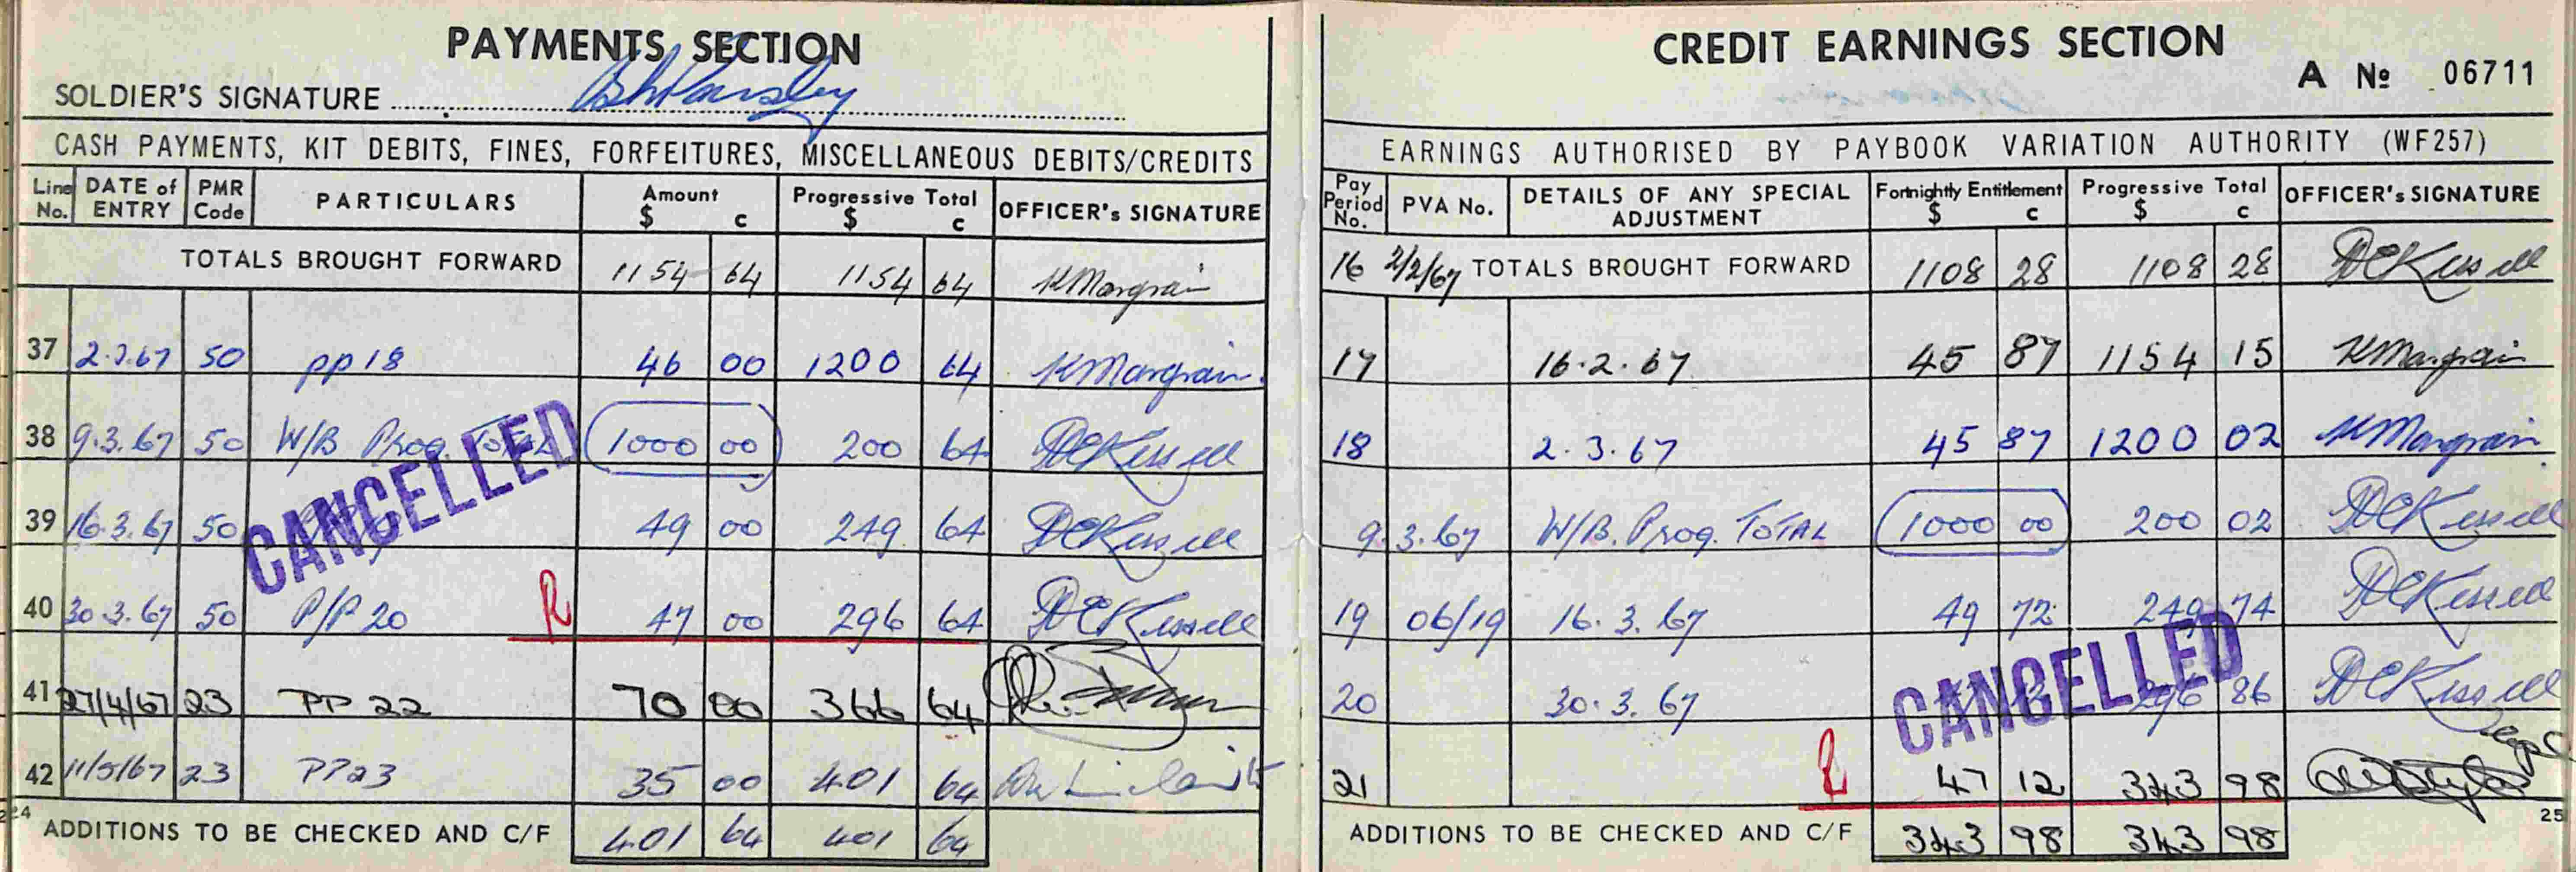 PAYMENTS SECTION
SOLDIER'S SIGNATURE
CASH PAYMENTS, KIT DEBITS, FINES, FORFEITURES, MISCELLANEOUS DEBITS/CREDITS
Line No. DATE of ENTRY PMR Code PARTICULARS Amount $ c Progressive Total $ c OFFICER's SIGNATURE
TOTALS BROUGHT FORWARD 1154 64 1154 64 KMargrain
37 2.3.67 50 pp 18 46 00 1200 64 KMargrain
38 9.3.67 50 W/B Prog. TOTAL 1000 00 200 64 DCKissell
39 16.3.67 50 49 00 249 64 DCKissell
CANCELLED
40 30.3.67 50 P/P 20 R 47 00 296 64 DCKissell
41 27/4/67 23 PP 22 70 00 366 64
42 11/5/67 23 PP23 35 00 401 64
24 ADDITIONS TO BE CHECKED AND C/F 401 64 401 64
CREDIT EARNINGS SECTION
A No 06711
EARNINGS AUTHORISED BY PAYBOOK VARIATION AUTHORITY (WF257)
Pay Period No. PVA No. DETAILS OF ANY SPECIAL ADJUSTMENT Fortnightly Entitlement $ c Progressive Total $ c OFFICER's SIGNATURE
16 2/2/67 TOTALS BROUGHT FORWARD 1108 28 1108 28 DCKissell
17 16.2.67 45 87 1154 15 KMargrain
18 2.3.67 45 87 1200 02 KMargrain
9.3.67 W/B. Prog. TOTAL 1000 00 200 02 DCKissell
19 06/19 16.3.67 49 72 249 74 DCKissell
20 30.3.67 296 86 DCKissell
CANCELLED
21 R 47 12 343 98
ADDITIONS TO BE CHECKED AND C/F 343 98 343 98
25